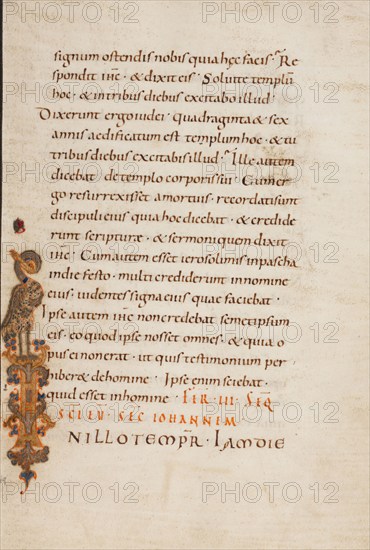 signum ostendis nobis quia hęc facis · Re
spondit ihc · & dixit eis · Soluite templū
hoc · & in tribus diebus excitabo illud ·
Dixerunt ergo iudei · quadraginta & sex
annis aedificatum est templum hoc · & tu
tribus diebus excitabis illud · Ille autem
dicebat · de templo corporis sui · Cum er
go resurrexisset a mortuis · recordati sunt
discipuli eius quia hoc dicebat · & credide
runt scripturae · & sermoni quem dixit
ihc · Cum autem esset ierosolimis in pascha
in die festo · multi crediderunt in nomine
eius · uidentes signa eius quae faciebat ·
Ipse autem ihc non credebat semetipsum
eis · eo quod ipse nosset omnes · & quia o
pus ei non erat · ut quis testimonium per
hiber& de homine · Ipse enim sciebat ·
quid esset in homine · FER · III · SEQ
SCI EU · SEC IOHANNEM
N ILLO TEMPR · IAM DIE
PHOTO 12